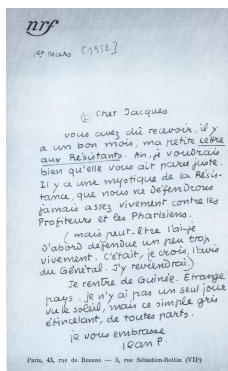 nrf
1er mars [1952]
cher Jacques
vous avez dû recevoir, il y
a un bon mois, ma petite lettre
aux Résistants. Ah, je voudrais
bien qu'elle vous ait paru juste.
Il y a une mystique de la Résis-
tance, que nous ne défendrons
jamais assez vivement contre les
Profiteurs et les Pharisiens.
(mais peut-être l'ai-je
d'abord défendue un peu trop
vivement. C'était, je crois, l'avis
du Général. J'y reviendrai)
Je rentre de Guinée. Etrange
pays. je n'y ai pas un seul jour
vu le soleil, mais ce simple gris
étincelant, de toutes parts.
je vous embrasse
Jean P.
Paris, 43, rue de Beaune — 5, rue Sébastien-Bottin (VIIe)